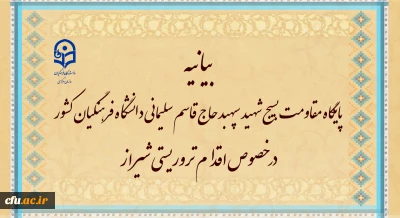 بیانیه
پایگاه مقاومت بسیج شهید سپهبد حاج قاسم سلیمانی دانشگاه فرهنگیان کشور
درخصوص اقدام تروریستی شیراز
cfu.ac.ir